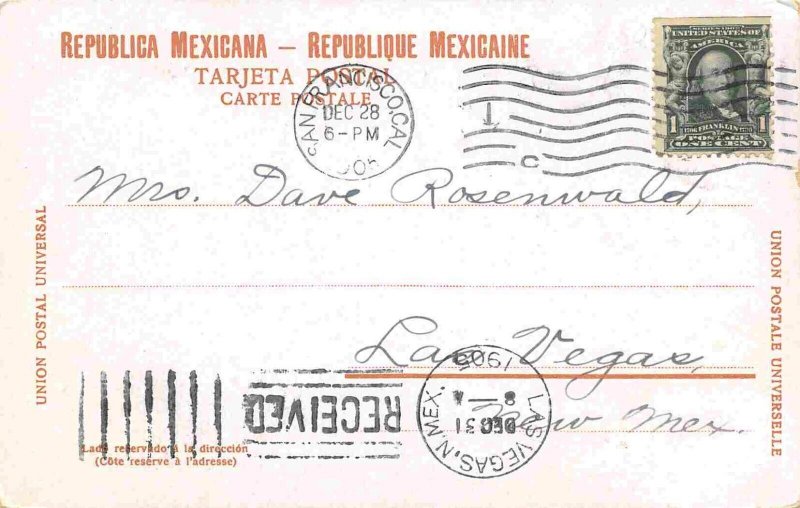 REPUBLICA MEXICANA — REPUBLIQUE MEXICAINE
TARJETA POSTAL
CARTE POSTALE
SERIES 1902
UNITED STATES OF
AMERICA
1 1706 FRANKLIN 1790 1
POSTAGE
ONE CENT
SAN FRANCISCO, CAL.
DEC 28
6-PM
190
C
Mrs. Dave Rosenwald,
Las Vegas,
New Mex.
UNION POSTAL UNIVERSAL
UNION POSTALE UNIVERSELLE
RECEIVED
LAS VEGAS, N. MEX.
DEC 31
8 — A
1905
Lado reservado á la dirección
(Côte réserve à l'adresse)